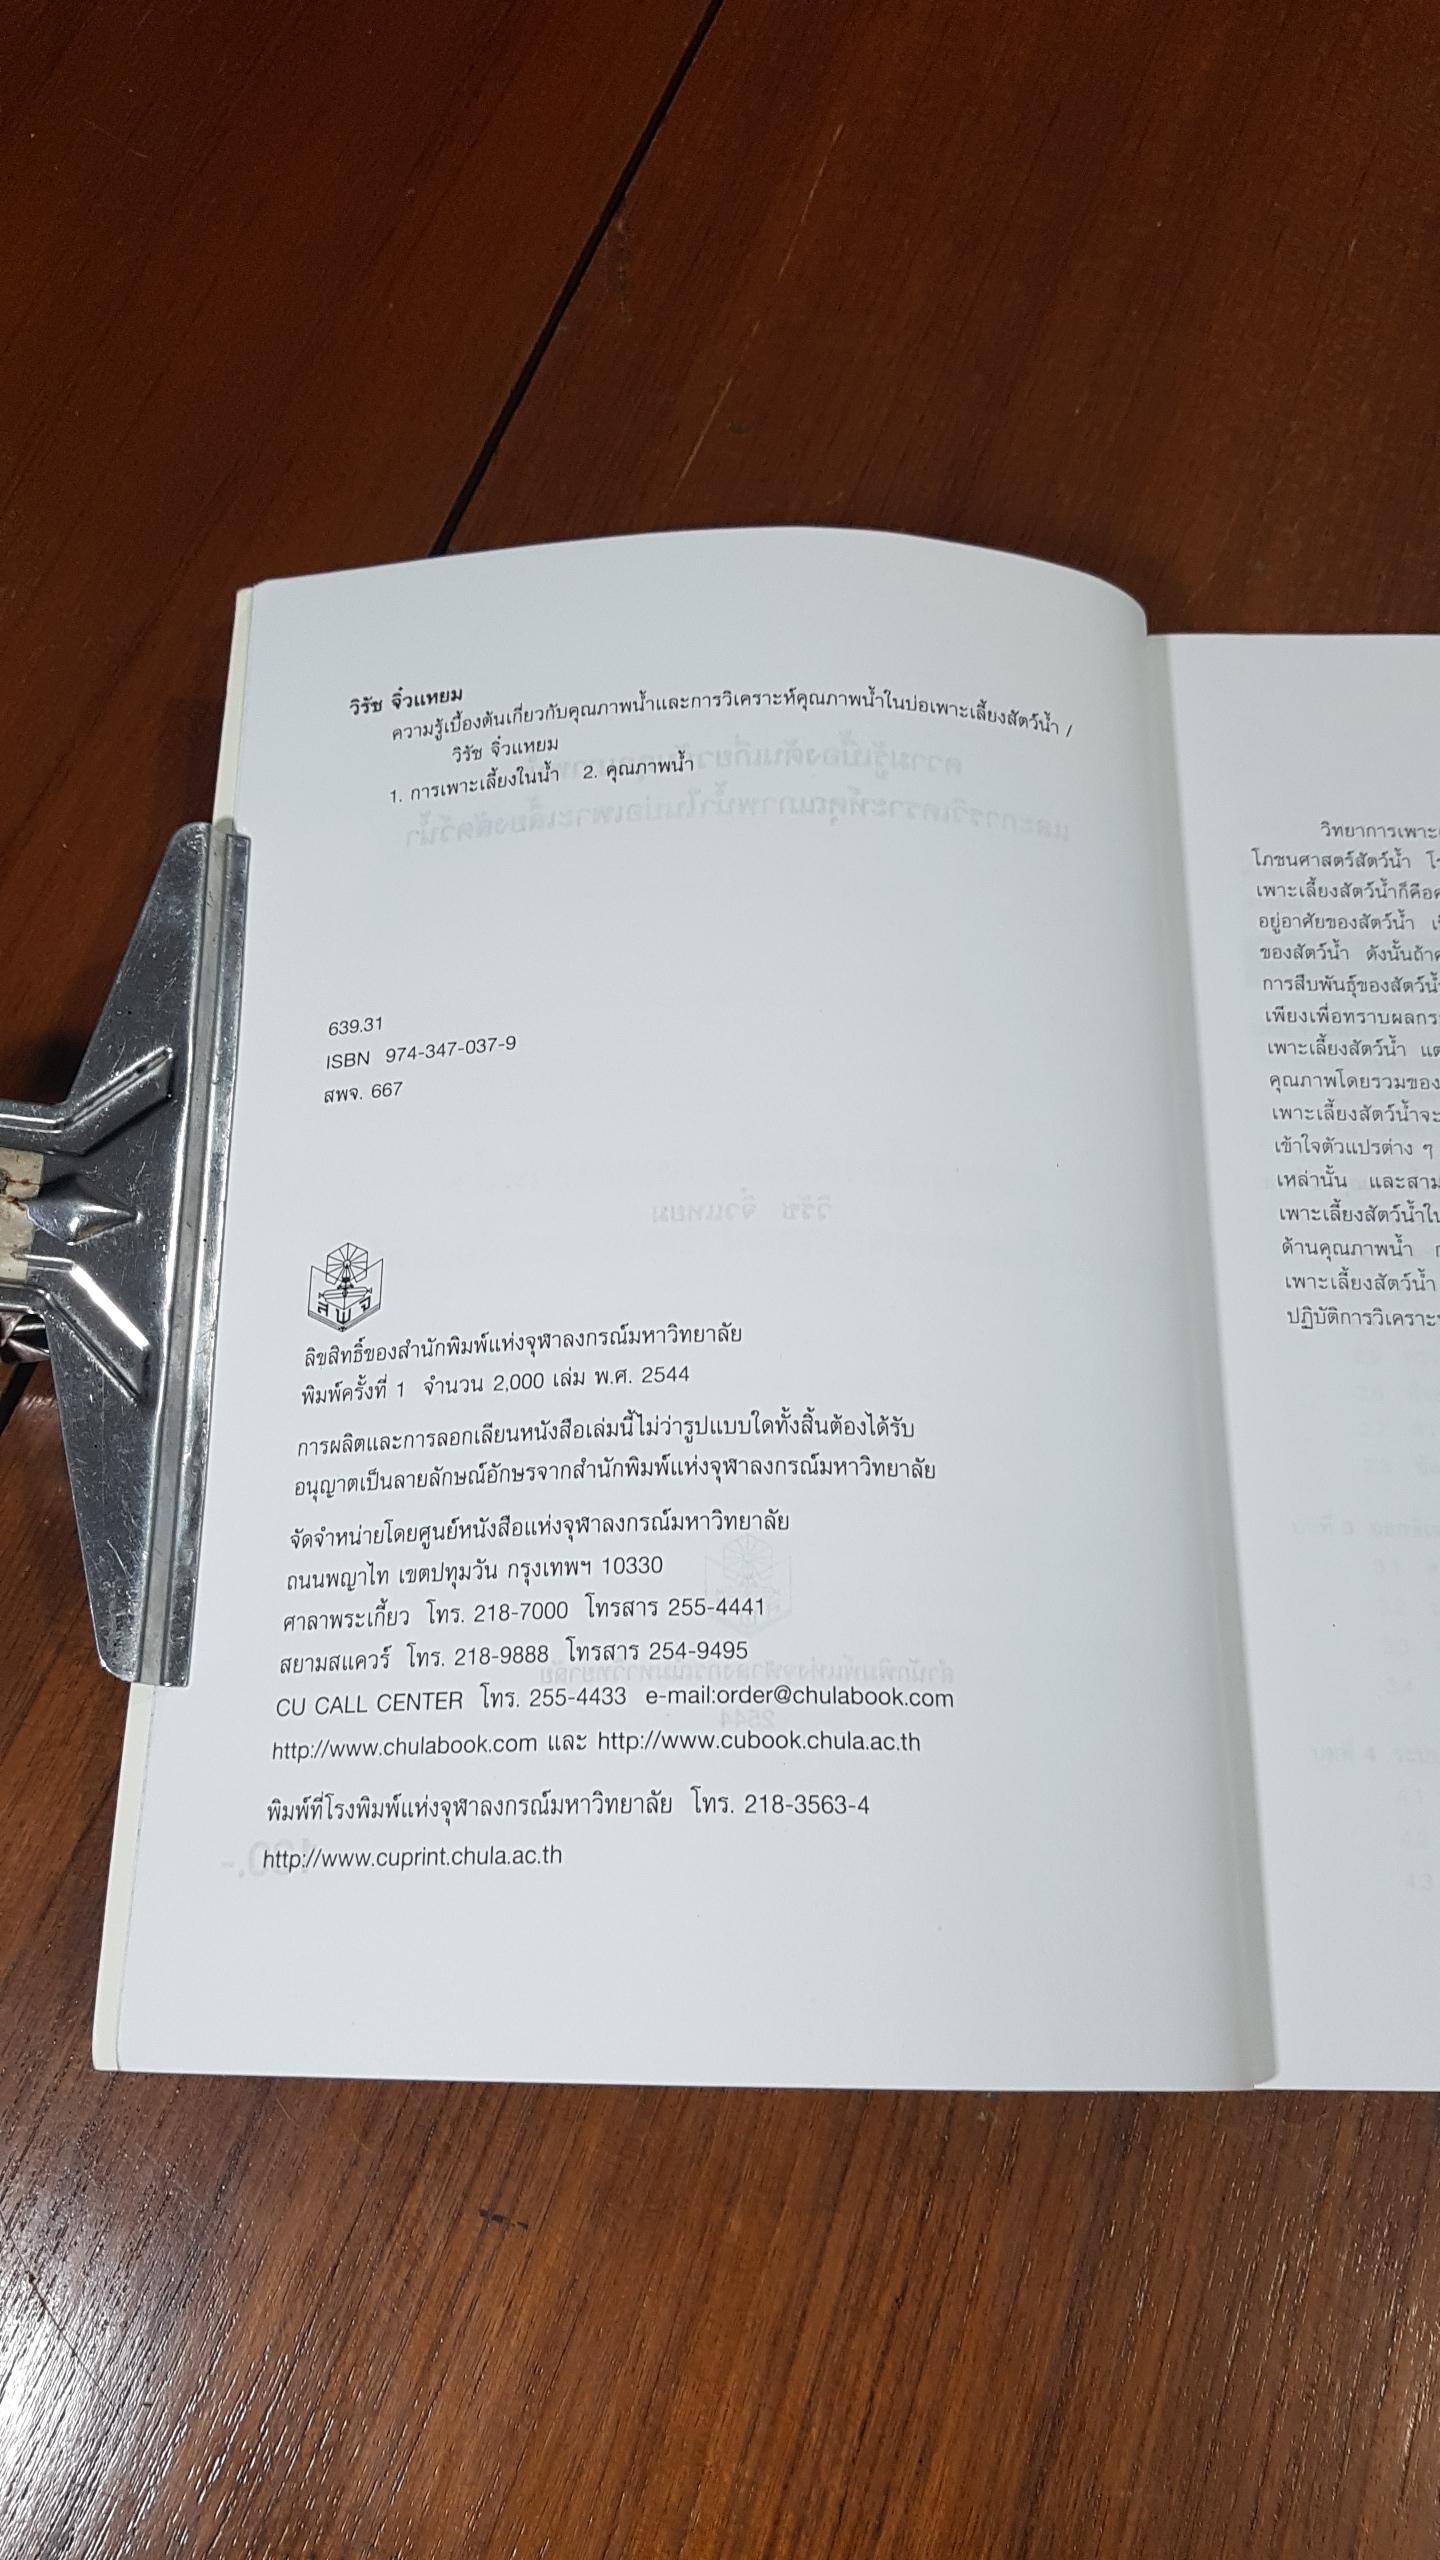 วิรัช จิ๋วแหยม
ความรู้เบื้องต้นเกี่ยวกับคุณภาพน้ำและการวิเคราะห์คุณภาพน้ำในบ่อเพาะเลี้ยงสัตว์น้ำ /
วิรัช จิ๋วแหยม
1. การเพาะเลี้ยงในน้ำ 2. คุณภาพน้ำ
639.31
ISBN 974-347-037-9
สพจ. 667
สพจ
ลิขสิทธิ์ของสำนักพิมพ์แห่งจุฬาลงกรณ์มหาวิทยาลัย
พิมพ์ครั้งที่ 1 จำนวน 2,000 เล่ม พ.ศ. 2544
การผลิตและการลอกเลียนหนังสือเล่มนี้ไม่ว่ารูปแบบใดทั้งสิ้นต้องได้รับ
อนุญาตเป็นลายลักษณ์อักษรจากสำนักพิมพ์แห่งจุฬาลงกรณ์มหาวิทยาลัย
จัดจำหน่ายโดยศูนย์หนังสือแห่งจุฬาลงกรณ์มหาวิทยาลัย
ถนนพญาไท เขตปทุมวัน กรุงเทพฯ 10330
ศาลาพระเกี้ยว โทร. 218-7000 โทรสาร 255-4441
สยามสแควร์ โทร. 218-9888 โทรสาร 254-9495
CU CALL CENTER โทร. 255-4433 e-mail:order@chulabook.com
http://www.chulabook.com และ http://www.cubook.chula.ac.th
พิมพ์ที่โรงพิมพ์แห่งจุฬาลงกรณ์มหาวิทยาลัย โทร. 218-3563-4
http://www.cuprint.chula.ac.th
วิทยาการเพาะ
โภชนศาสตร์สัตว์น้ำ
เพาะเลี้ยงสัตว์น้ำก็คือ
อยู่อาศัยของสัตว์น้ำ
ของสัตว์น้ำ ดังนั้นถ้า
การสืบพันธุ์ของสัตว์น้ำ
เพียงเพื่อทราบผลกระ
เพาะเลี้ยงสัตว์น้ำ แต่
คุณภาพโดยรวมของ
เพาะเลี้ยงสัตว์น้ำจะ
เข้าใจตัวแปรต่าง ๆ
เหล่านั้น และสาม
เพาะเลี้ยงสัตว์น้ำใน
ด้านคุณภาพน้ำ
เพาะเลี้ยงสัตว์น้ำ
ปฏิบัติการวิเคราะ